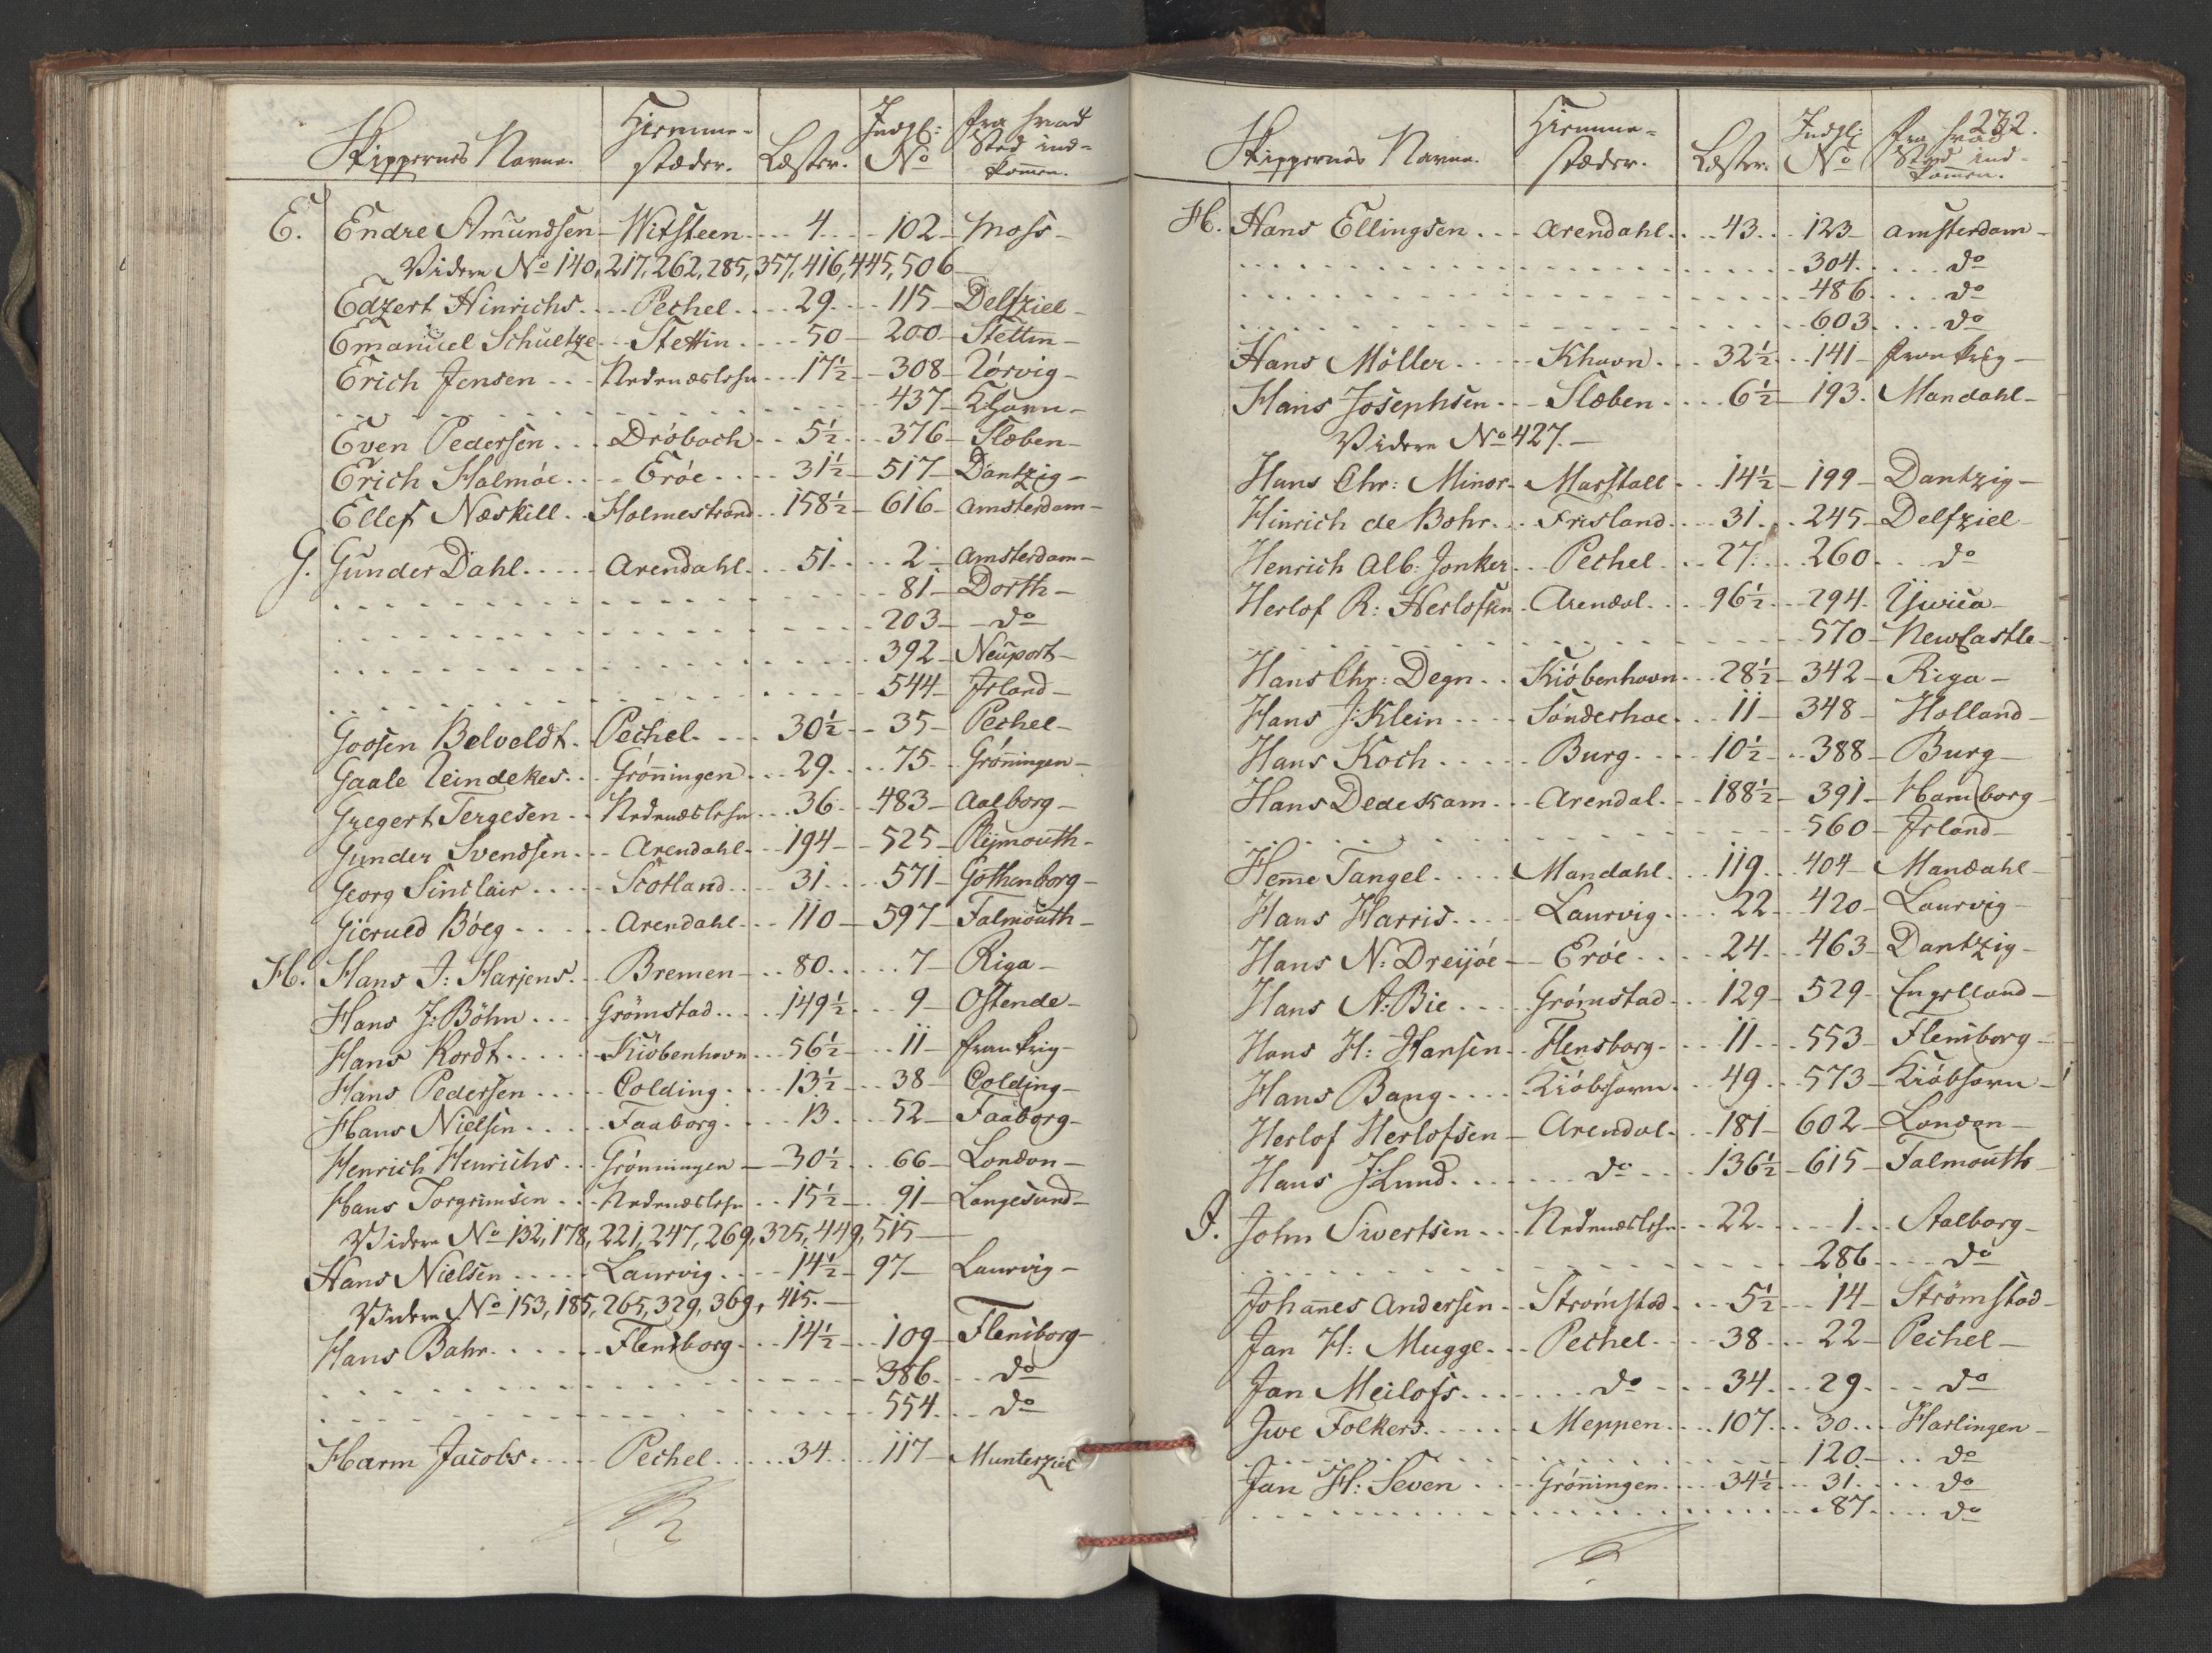 Skippernes Navne. Hiemme- Læster. Indgl: fra hvad
stæder. No Sted ind-
kommen.
E. Endre Amundsen - Witsteen - 4 - 102 - Moss -
Videre No 140, 217, 262, 285, 357, 416, 445, 506
Edzert Hinrichs - Pechel - 29 - 115 - Delfziel -
Emanuel Schultze - Stettin - 50 - 200 - Stettin -
Erich Jensen - Nedenæslehn - 17½ - 308 - Törvig -
437 - Khavn -
Even Pedersen - Dröbach - 5½ - 376 - Slæben -
Erich Halmöe - Eröe - 31½ - 517 - Dantzig -
Ellef Næskill - Holmestrand - 158½ - 616 - Amsterdam -
G. Gunder Dahl - Arendahl - 51 - 2 - Amsterdam -
81 - Dorth -
203 - do
392 - Neuport -
544 - Irland -
Goosen Belveldt - Pechel - 30½ - 35 - Pechel -
Gaale Teindekes - Gröningen - 29 - 75 - Gröningen -
Gregert Tergesen - Nedenæslehn - 36 - 483 - Aalborg -
Gunder Svendsen - Arendahl - 194 - 525 - Pleymouth -
Georg Sinclair - Scotland - 31 - 571 - Gothenborg -
Gierued Böeg - Arendahl - 110 - 597 - Falmouth -
H. Hans J: Harjens - Bremen - 80 - 7 - Riga -
Hans J: Böhn - Grömstad - 149½ - 9 - Ostende -
Hans Kordt - Kiöbenhavn - 56½ - 11 - frankrig -
Hans Pedersen - Colding - 13½ - 38 - Colding -
Hans Nielsen - Faaborg - 13 - 52 - Faaborg -
Henrich Henrichs - Grönningen - 30½ - 66 - London -
Hans Torgrimsen - Nedenæslehn - 15½ - 91 - Langesund -
Videre No 132, 178, 221, 247, 269, 325, 449, 515
Hans Nielsen - Laurvig - 14½ - 97 - Laurvig -
Videre No 153, 185, 265, 329, 369, 415. -
Hans Bahr - Flensborg - 14½ - 109 - Flensborg -
386 - do
554 - do
Harm Jacobs - Pechel - 34 - 117 - Munterziel
232.
Skippernes Navne. Hiemme- Læster. Indgl: fra hvad
stæder. No Sted ind-
kommen.
H. Hans Ellingsen - Arendahl - 43 - 123 - Amsterdam -
304 - do
486 - do
603 - do
Hans Möller - Khavn - 32½ - 141 - frankrig -
Hans Josephsen - Slæben - 6½ - 193 - Mandahl -
Videre No 427. -
Hans Chr: Minor - Marstall - 14½ - 199 - Dantzig -
Hinrich de Bohr - Frisland - 31 - 245 - Delfziel
Henrich Alb: Jonker - Pechel - 27 - 260 - do
Herlof R: Herlofsen - Arendal - 96½ - 294 - Yvica -
570 - NewCastle -
Hans Chr: Degn - Kiöbenhavn - 28½ - 342 - Riga -
Hans J: Klein - Sönderhoe - 11 - 348 - Holland -
Hans Koch - Burg - 10½ - 388 - Burg -
Hans Dedekam - Arendal - 188½ - 391 - Hamborg -
560 - Irland -
Hemme Tangel - Mandahl - 119 - 404 - Mandahl -
Hans Harris - Laurvig - 22 - 420 - Laurvig -
Hans N: Dreijöe - Eröe - 24 - 463 - Dantzig -
Hans A: Bie - Grömstad - 129 - 529 - Engelland -
Hans H: Hansen - Flensborg - 11 - 553 - Flensborg -
Hans Bang - Kiöbhavn - 49 - 573 - Kiöbhavn -
Herlof Herlofsen - Arendal - 181 - 602 - London -
Hans J: Lund - do - 136½ - 615 - Falmouth -
J. John Sivertsen - Nedenæslehn - 22 - 1 - Aalborg -
286 - do
Johannes Andersen - Strömstad - 5½ - 14 - Strömstad -
Jan H: Mugge - Pechel - 38 - 22 - Pechel -
Jan Meilofs - do - 34 - 29 - do
Jwe Folkers - Meppen - 107 - 30 - Harlingen -
120 - do
Jan H: Seven - Gröningen - 34½ - 31 - do
87 - do